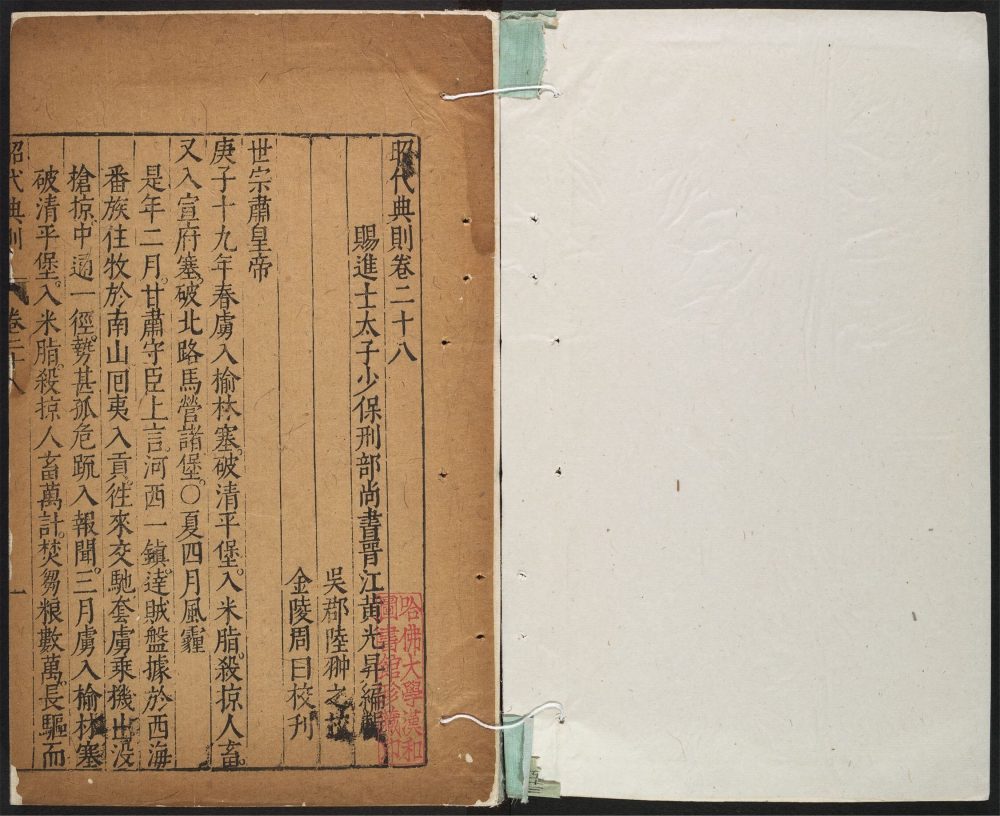 昭代典則卷二十八
賜進士太子少保刑部尚書晉江黃光昇編輯
吳郡陸翀之
金陵周曰校刊
世宗肅皇帝
庚子十九年春虜入榆林塞。破清平堡。入米脂。殺掠人畜。
又入宣府塞。破北路馬營諸堡。○夏四月風霾
是年二月。甘肅守臣上言。河西一鎮。達賊盤據於西海
番族住牧於南山回夷入貢。徃來交馳套虜乘機出沒
槍掠。中通一徑。勢甚孤危疏入報聞。三月虜入榆林塞
破清平堡。入米脂。殺掠人畜萬計。焚芻粮數萬。長驅而
昭代典則 卷二十八 一
哈佛大學漢和
圖書館珍藏印